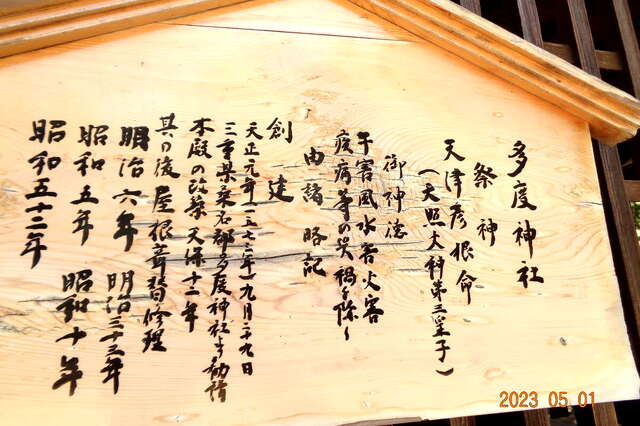 多度神社
祭神
天津彦根命
(天照大神第三皇子)
御神徳
干害風水害火害
疫病等の災禍を除く
由緒略記
創建
天正元年(一五七三年)九月二十九日
三重県桑名郡多度神社より勧請
本殿の改築 天保十二年
其の後屋根葺替修理
明治六年 明治三十三年
昭和五年 昭和十年
昭和五十二年
2023 05 01